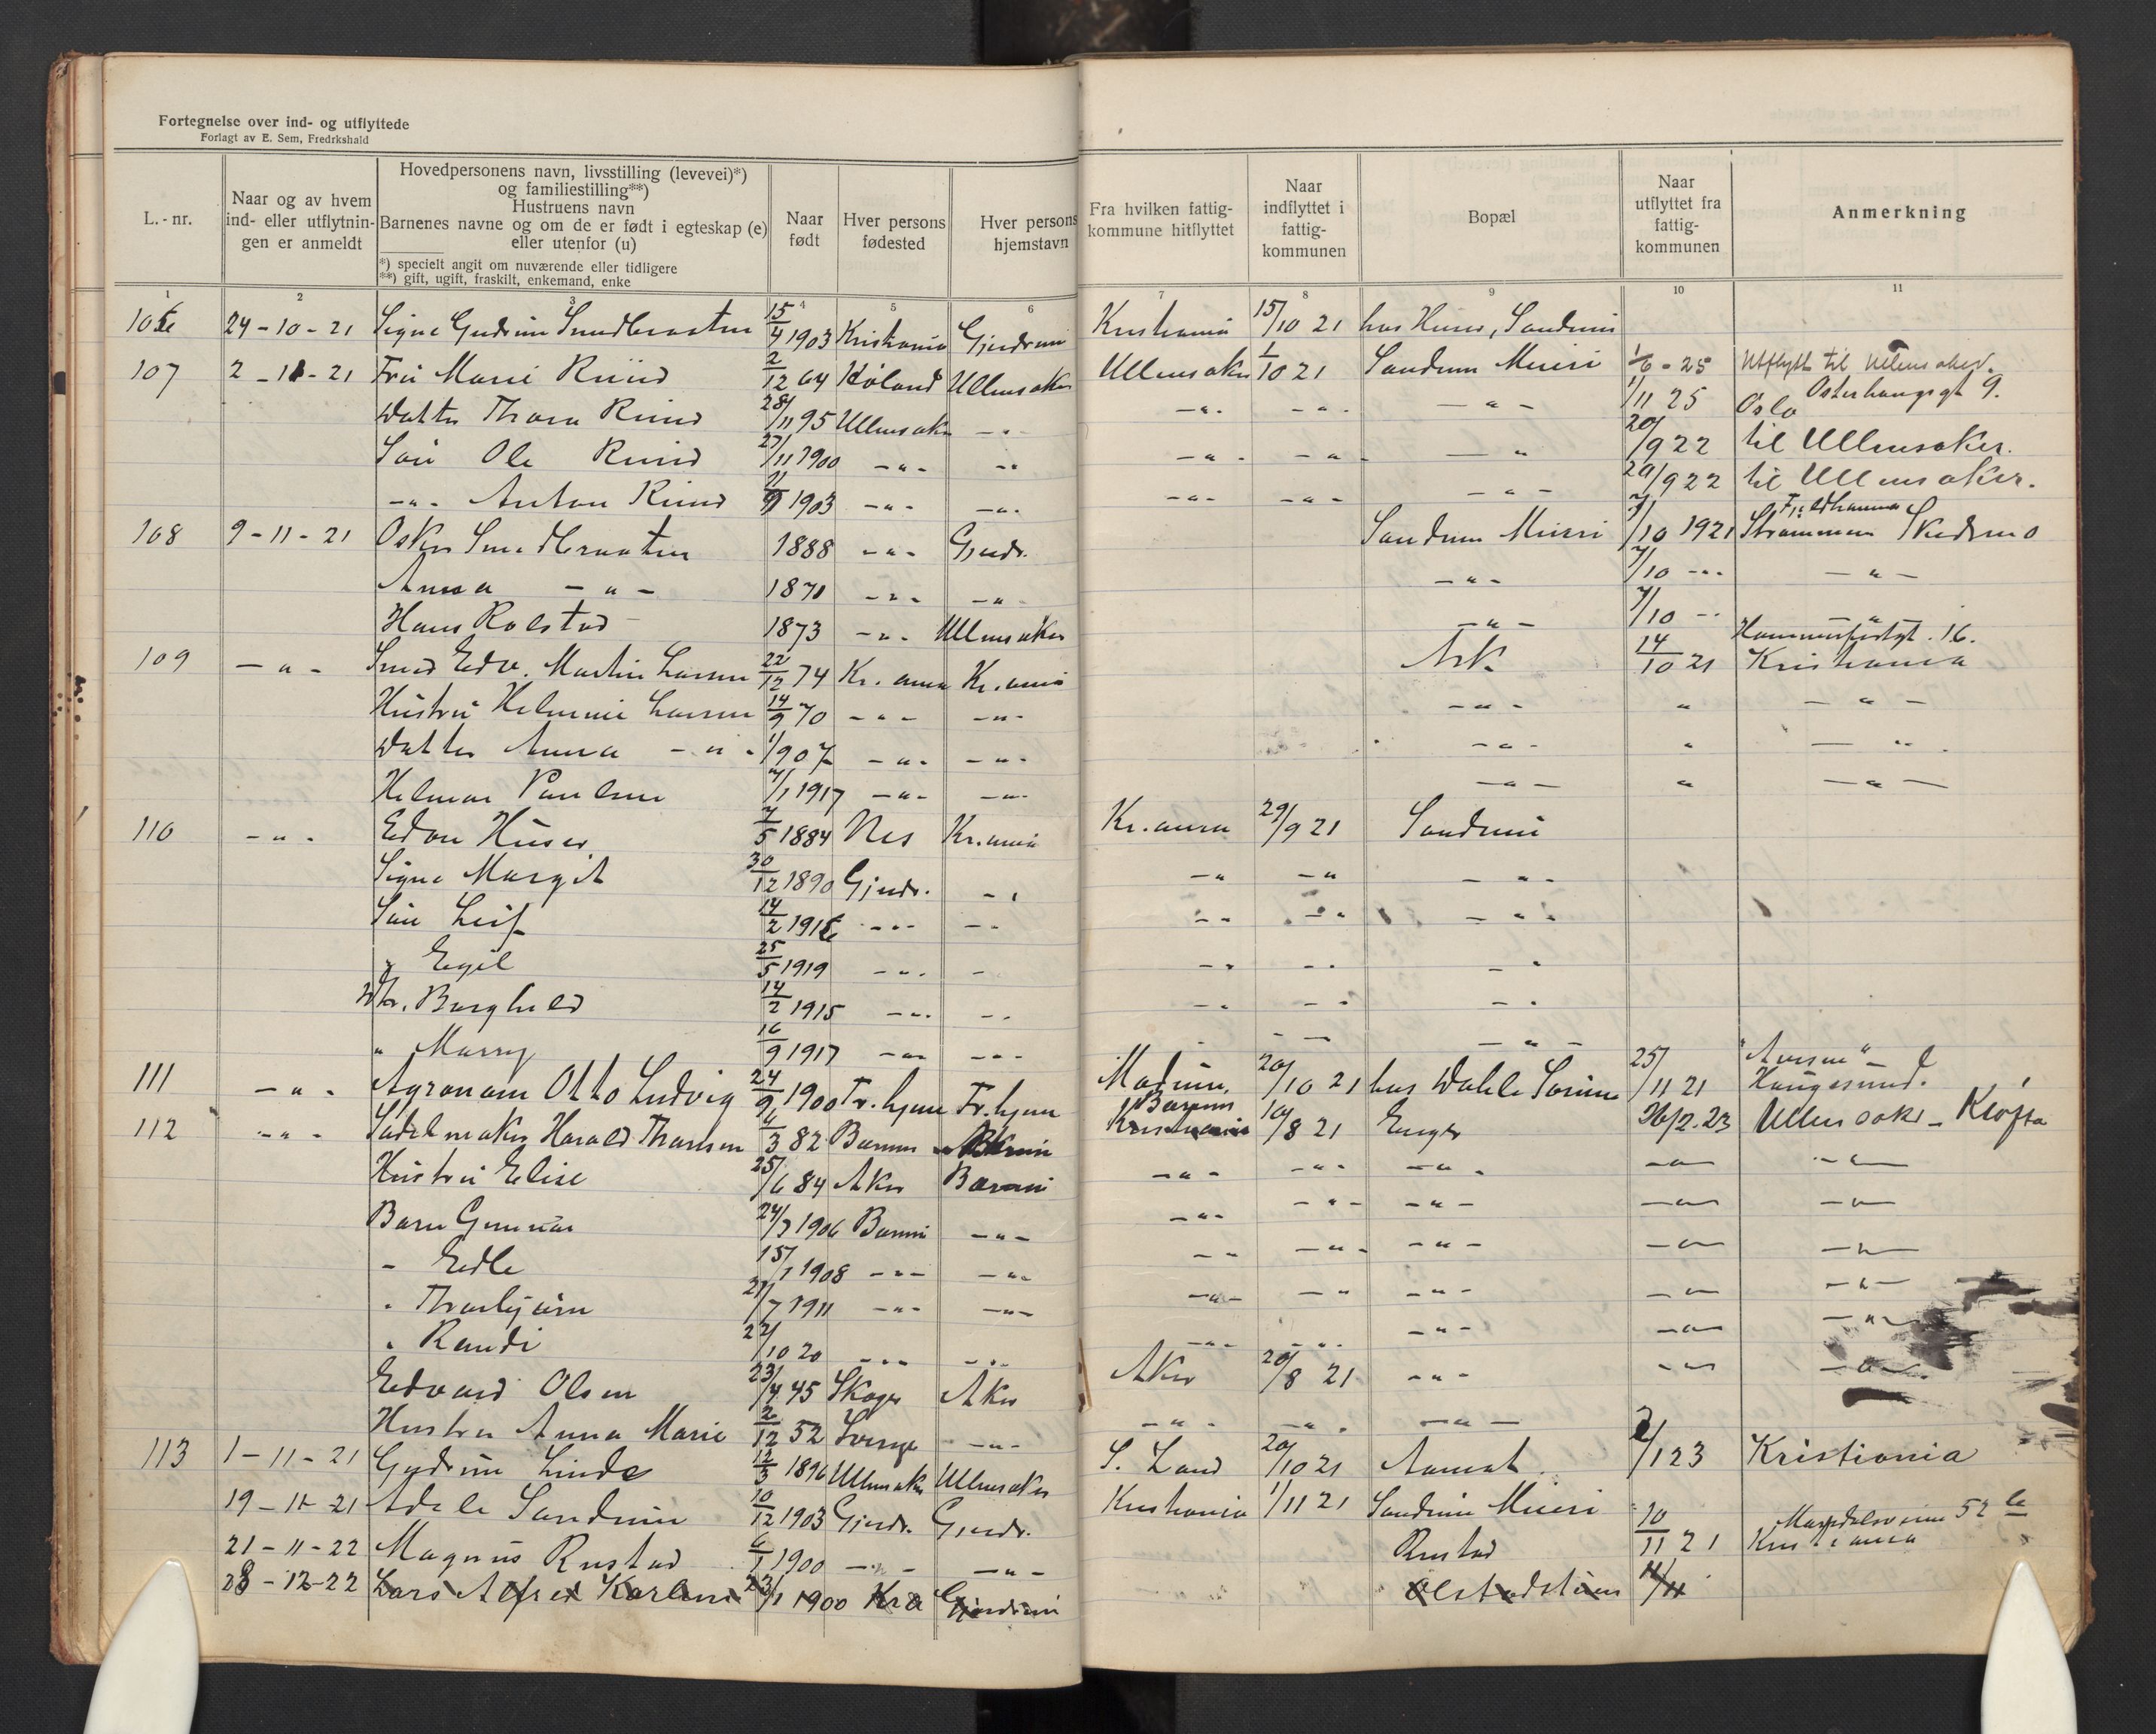 Fortegnelse over ind- og utflyttede
Forlagt av E. Sem, Fredrkshald
L.-nr.
Naar og av hvem ind- eller utflytnin- gen er anmeldt
Hovedpersonens navn, livsstilling (levevei)*)
og familiestilling**)
Hustruens navn
Barnenes navne og om de er født i egteskap (e)
eller utenfor (u)
*) specielt angit om nuværende eller tidligere
**) gift, ugift, fraskilt, enkemand, enke
Naar født
Hver persons fødested
Hver persons hjemstavn
Fra hvilken fattig- kommune hitflyttet
Naar indflyttet i fattig- kommunen
Bopæl
Naar utflyttet fra fattig- kommunen
Anmerkning
1 2 3 4 5 6 7 8 9 10 11
106 24-10-21 Signe Gudrun Smedbraaten 15/4 1903 Kristiania Gjerdrum Kristiania 15/10 21 hos Huser, Sandum
107 2-11-21 Fru Marie Ruud 2/12 64 Høland Ullensaker Ullensaker 1/10 21 Sandum Mieri 1/6-25 Utflytt til Ullensaker.
Datter Thora Ruud 28/11 95 Ullensaker -"- -"- -"- -"- 1/11 25 Oslo Osterhausgt 9.
Søn Ole Ruud 27/11 1900 -"- -"- -"- -"- -"- 20/9 22 til Ullensaker.
-"- Anton Ruud 1903 -"- -"- -"- -"- -"- 20/9 22 til Ullensaker.
108 9-11-21 Oskar Smedbraaten 1888 -"- Gjerdr. Sandum Mieri 7/10 1921 Strømmen Skedsmo
Anna -"- 1870 -"- -"- -"- 7/10 -"- -"-
Hans Rolstad 1873 -"- Ullensaker -"- 7/10 -"- -"-
109 -"- Smed Edv. Martin Larsen 22/12 74 Kr.ania Kr.ania Ask 14/10 21 Hammerfestgt. 16. Kristiania
Hustru Helmine Larsen 14/9 70 -"- -"- -"- " -"-
Datter Anna -"- 1/9 07 -"- -"- -"- " -"-
Helmar Paulsen 7/1 1917 -"- -"- -"- " -"-
110 -"- Edon Huser 7/5 1884 Nes Kr.ania Kr.ania 29/9 21 Sandum
Signe Margit 30/12 1890 Gjerdr. -"- -"- -"- -"-
Søn Leif 14/2 1916 -"- -"- -"- -"- -"-
" Egil 25/5 1919 -"- - -"- -"- -"-
Dtr. Borghild 14/2 1915 -"- -"- -"- -"- -"-
" Marry 16/9 1917 -"- -"- -"- -"- -"-
111 -"- Agronom Otto Ludvig 24/9 1900 Tr.hjem Tr.hjem Modum 20/10 21 hos Dahle Sørum 25/11 21 Haugesund.
112 -"- Sadelmaker Harald Thorsen 6/3 82 Bærum Bærum 10/8 21 Enger 26/2.23 Ullensaker - Kløfta
Hustru Elise 25/6 84 Aker Bærum -"- -"- -"- -"- -"-
Barn Gunnar 24/7 1906 Bærum -"- -"- -"- -"- -"- -"-
- Edle 15/1 1908 -"- -"- -"- -"- -"- -"- -"-
" Thorbjørn 21/7 1911 -"- -"- -"- -"- -"- -"- -"-
" Randi 22/10 20 -"- -"- -"- -"- -"- -"- -"-
Edvard Olsen 23/4 45 Skoger Aker Aker 20/8 21 -"- -"- -"-
Hustru Anna Marie 2/12 52 Sverge -"- -"- -"- -"-
113 1-11-21 Gudrun Linde 12/3 1896 Ullensaker Ullensaker S. Land 20/10 21 Aamot 2/1 23 Kristiania
19-11-21 Adele Sandum 10/12 1903 Gjerdr. Gjerdr. Kristiania 1/11 21 Sandum Mieri
21-11-22 Magnus Rustad 6/1 1900 -"- -"- Rustad 10/11 21 Maridalsveien 52 Kristiania
28-12-22 Lars Alfred Karlsen 23/1 1900 Kra Gjerdrum Olstadstuen 11/11